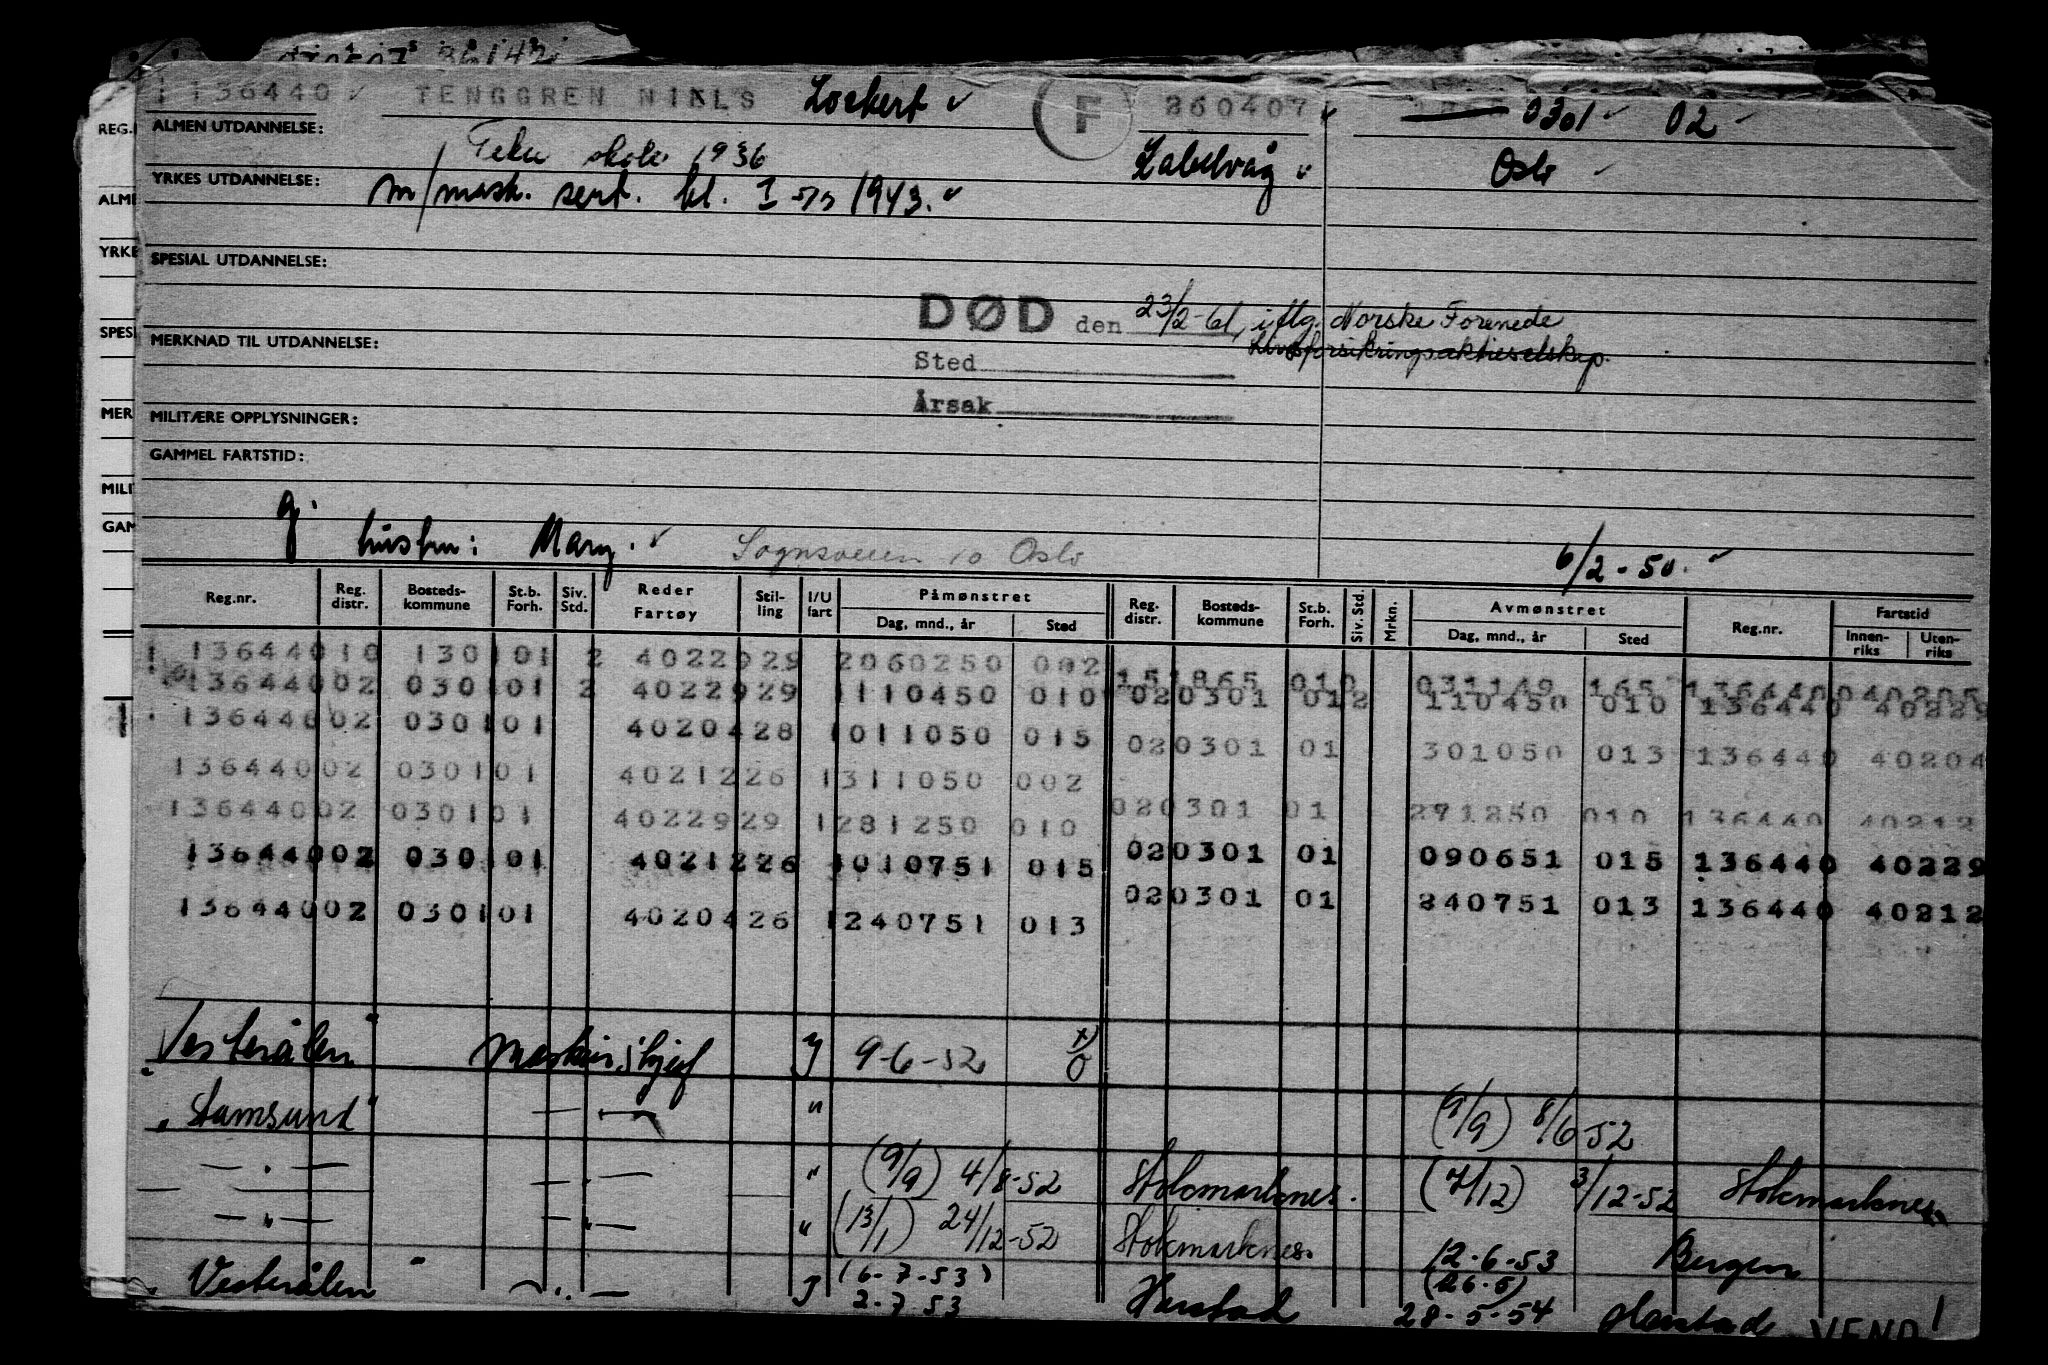 136440 TENGGREN NILS Lockert F 260407 0301 02
REG.
ALMEN UTDANNELSE: skole 1936
Oslo
YRKES UTDANNELSE: m/mask. sert. kl. I 1943.
ALME
YRKE
SPESIAL UTDANNELSE:
DØD den 23/2-61, iflg. Norske Forenede
Livsforsikringsaktieselskap.
SPESI
MERKNAD TIL UTDANNELSE:
Sted
Årsak
MER
MILITÆRE OPPLYSNINGER:
GAMMEL FARTSTID:
MILI
GAM
g.
hustru: Mary. Sognsveien 10 Oslo 6/2-50.
Reg.nr. Reg. distr. Bosteds-kommune St.b. Forh. Siv. Std. Reder Fartøy Stil-ling I/U fart Påmønstret Reg. distr. Bosteds-kommune St.b. Forh. Siv. Std. Mrkn. Avmønstret Reg.nr. Fartstid
Dag, mnd., år Sted Dag, mnd., år Sted Innen-riks Uten-riks
13644010 130101 2 4022929 2060250 002 151865 010 031149 165 136440 040205
13644002 030101 2 4022929 1110450 010 020301 012 110450 010 136440 40229
13644002 030101 4020428 1011050 015 020301 01 301050 013 136440 40204
13644002 030101 4021226 1311050 002 020301 01 271250 010 136440 40212
13644002 030101 4022929 1281250 010 020301 01 090651 015 136440 40229
13644002 030101 4021226 1010751 015 020301 01 240751 013 136440 40212
13644002 030101 4020426 1240751 013
"Vesterålen" maskinsjef 9-6-52
"Stamsund" — " — " (9/9) 8/6-52
— " — — " — " (9/9) 4/8-52 Stokmarknes. (7/12) 3/12-52 Stokmarknes
— " — — " — " (13/1) 24/12-52 Stokmarknes. 12-6-53 Bergen
"Vesterålen" — " — (6-7-53) 2-7-53 Harstad (26-5) 28-5-54 Harstad
VEND!